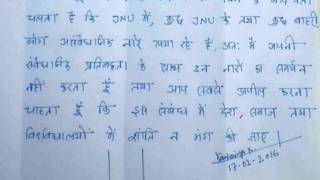 चलता है कि JNU में, कुछ JNU के तथा कुछ बाहरी
लोग असंवैधानिक नारे लगा रहे हैं. अतः मैं अपनी
संवैधानिक प्रतिबद्धता के साथ उन नारों का समर्थन
नहीं करता हूँ तथा आप सबसे अपील करना
चाहता हूँ कि इस संबंध में देश, समाज तथा
विश्वविद्यालयों में शांति न भंग की जाए।
17-02-2016